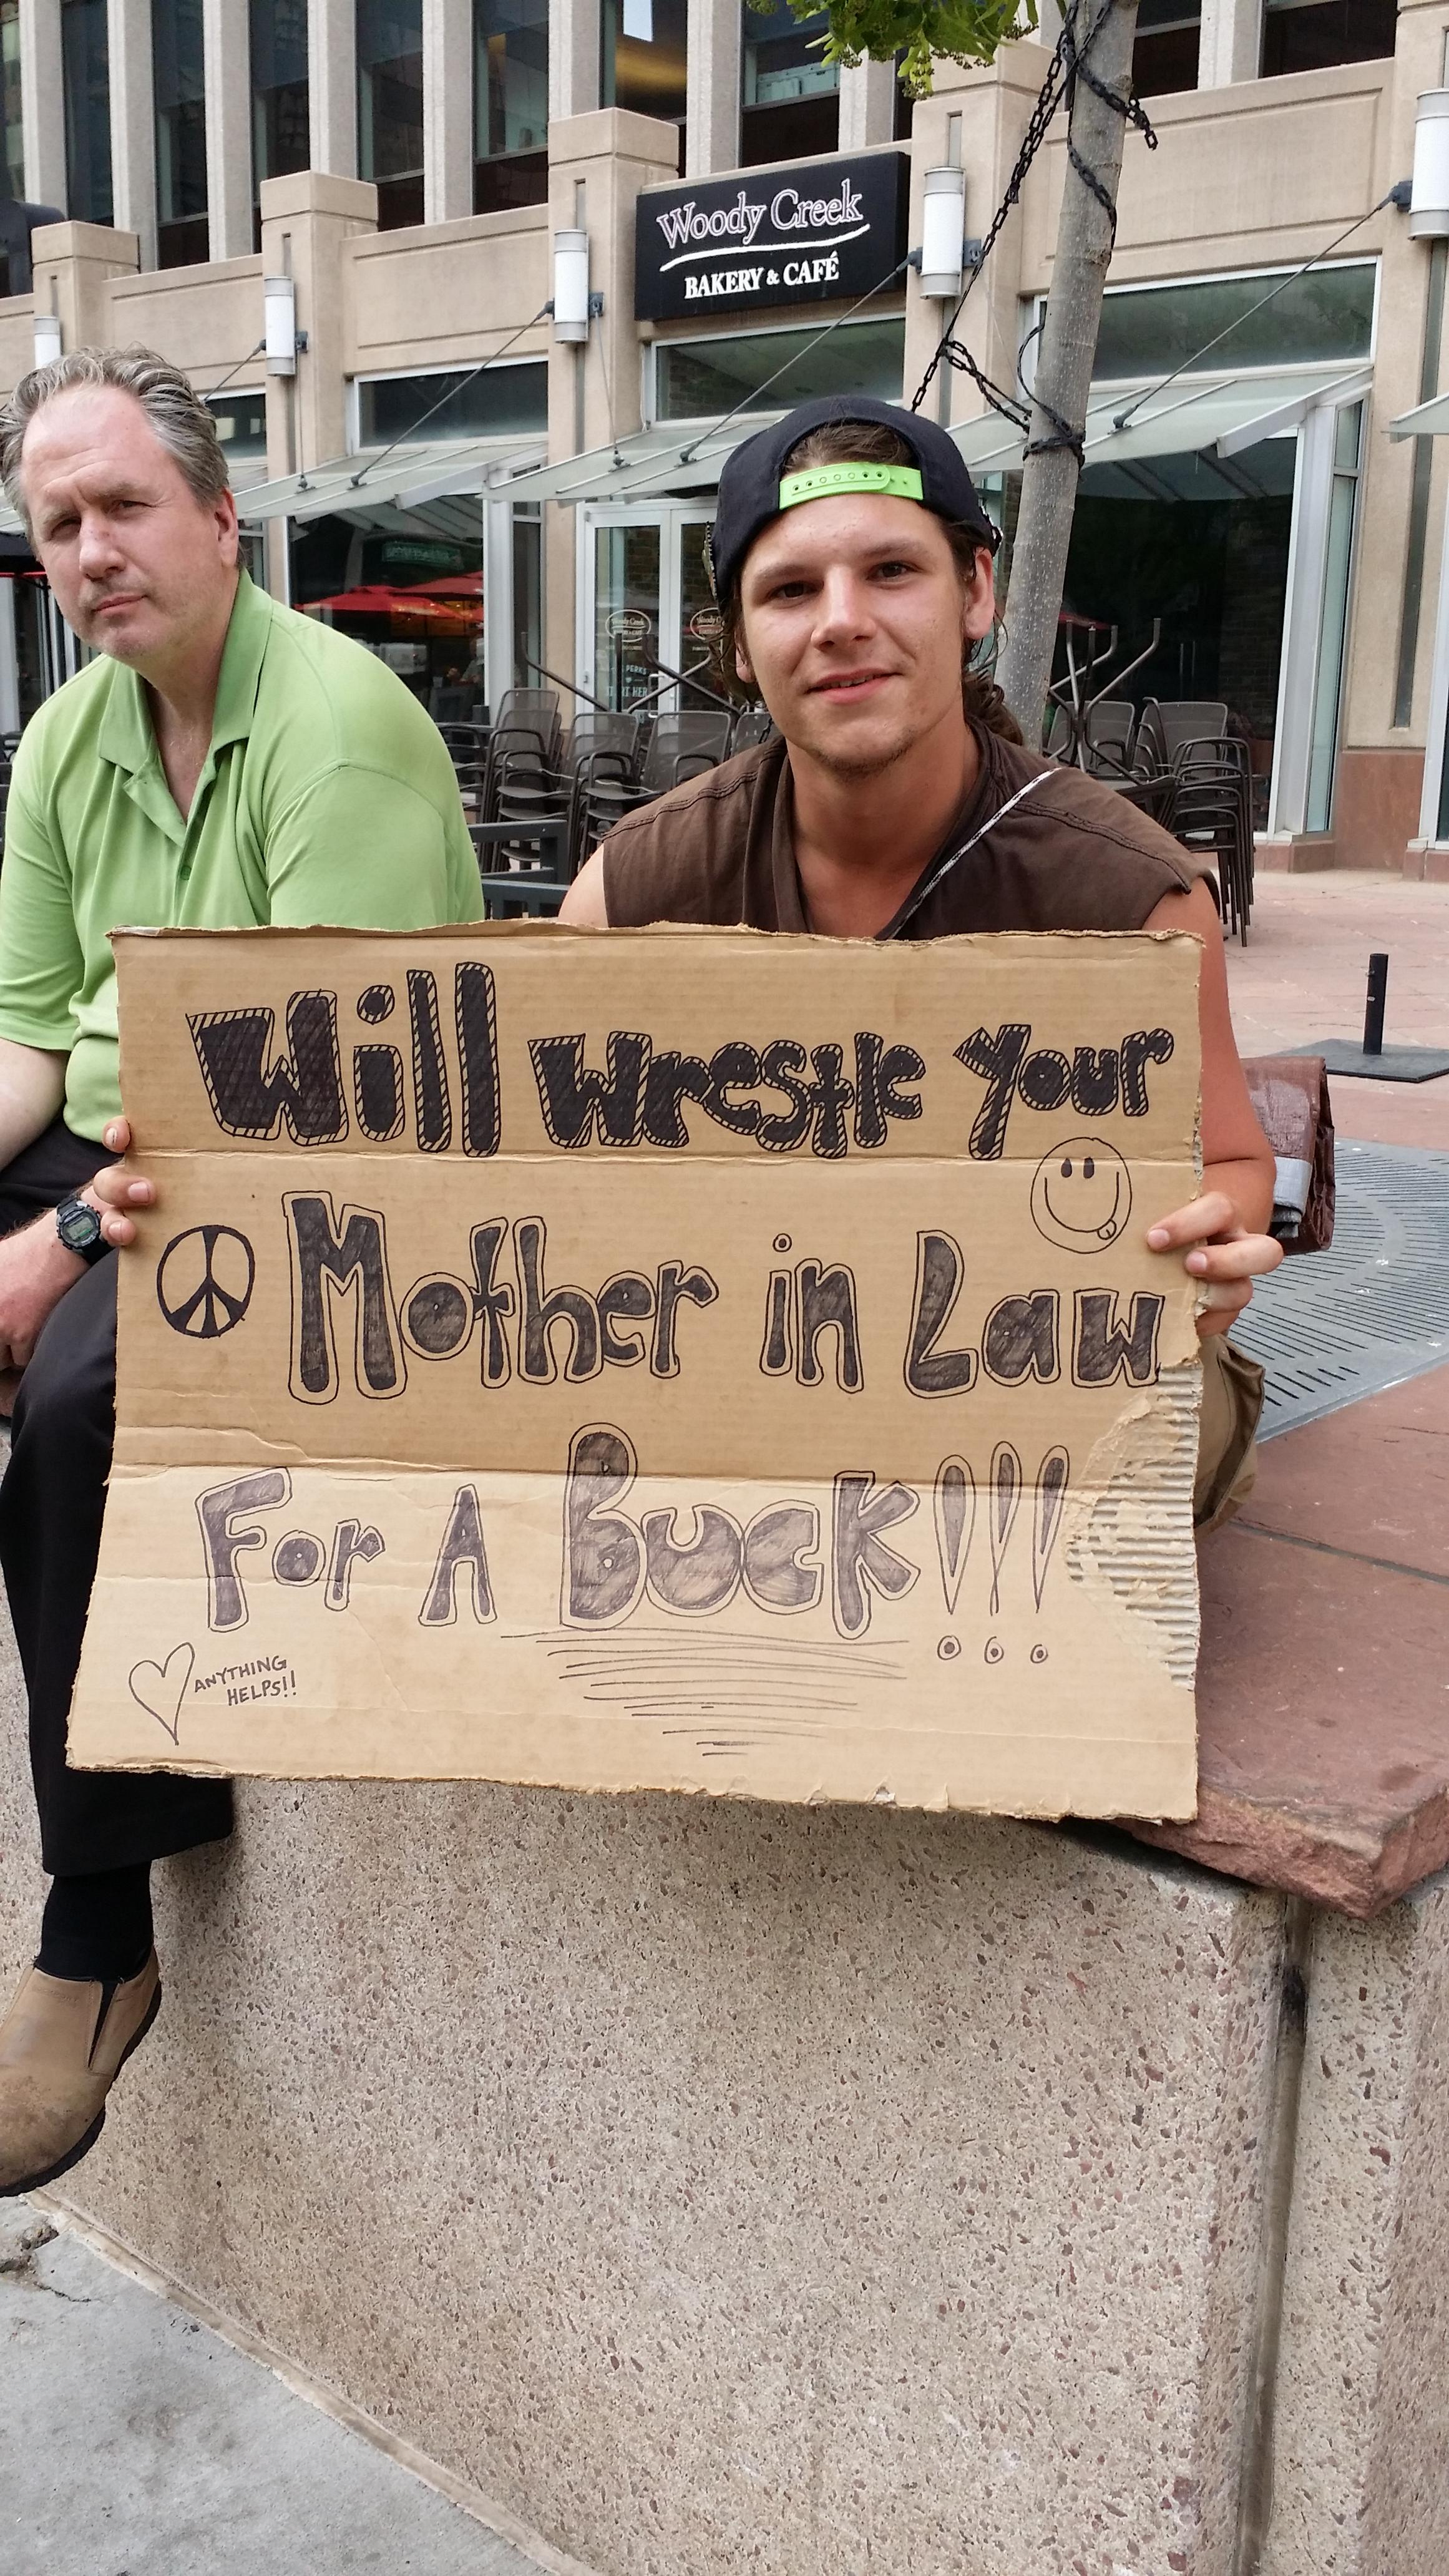 Woody Creek
BAKERY & CAFÉ
Will wrestle your
Mother in Law
For A Buck!!!
ANYTHING
HELPS!!